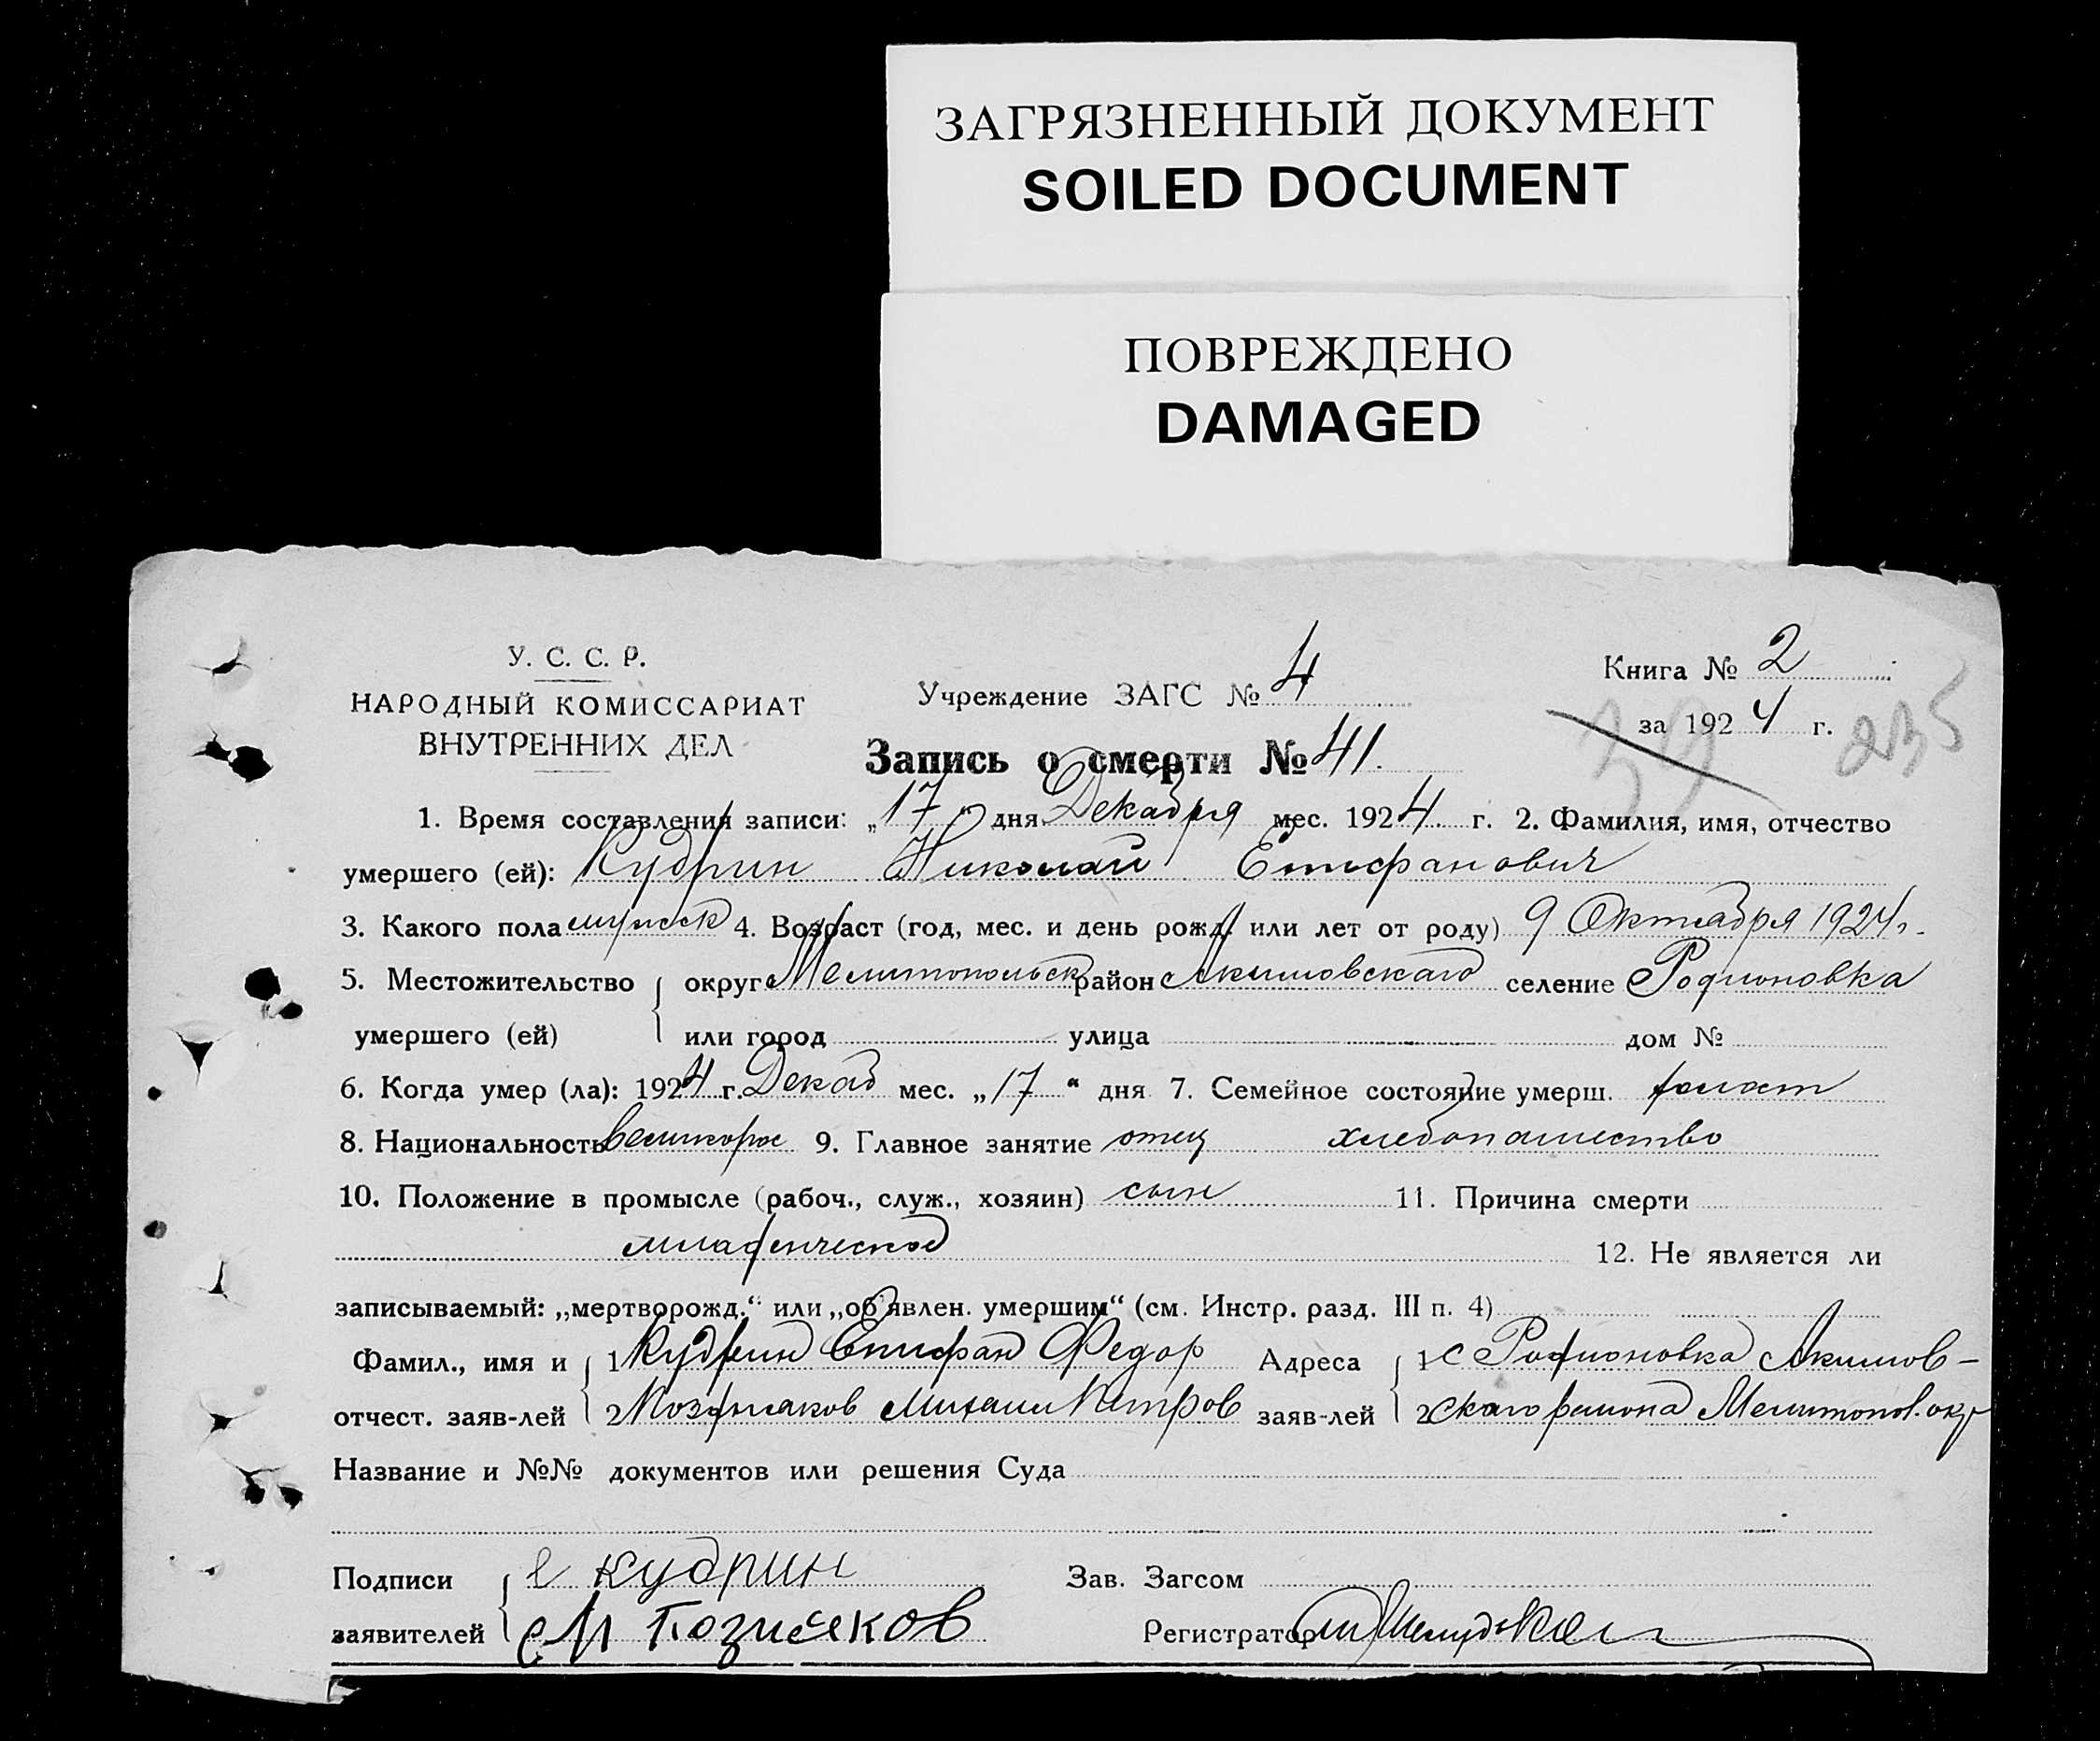 ЗАГРЯЗНЕННЫЙ ДОКУМЕНТ
SOILED DOCUMENT
ПОВРЕЖДЕНО
DAMAGED
У. С. С. Р.
НАРОДНЫЙ КОМИССАРИАТ
ВНУТРЕННИХ ДЕЛ
Учреждение ЗАГС № 4
Книга № 2
за 1924 г.
39
235
Запись о смерти № 41.
1. Время составления записи: „17“ дня Декабря мес. 1924 г. 2. Фамилия, имя, отчество
умершего (ей): Кудрин Николай Епифанович
3. Какого пола мужск 4. Возраст (год, мес. и день рожд. или лет от роду) 9 Октября 1924 г.
5. Местожительство округ Мелитопольск район Акимовского селение Родионовка
умершего (ей) или город улица дом №
6. Когда умер (ла): 1924 г. Декаб мес. „17“ дня 7. Семейное состояние умерш. холост
8. Национальность великорос 9. Главное занятие отец хлебопашество
10. Положение в промысле (рабоч., служ., хозяин) сын 11. Причина смерти
младенческое 12. Не является ли
записываемый: „мертворожд.“ или „об'явлен. умершим“ (см. Инстр. разд. III п. 4)
Фамил., имя и 1 Кудрин Епифан Федор Адреса 1 с Родионовка Акимов-
отчест. заяв-лей 2 Михаил Петров заяв-лей 2 ского района Мелитопол. окр
Название и №№ документов или решения Суда
Подписи е кудрин Зав. Загсом
заявителей М Регистратор